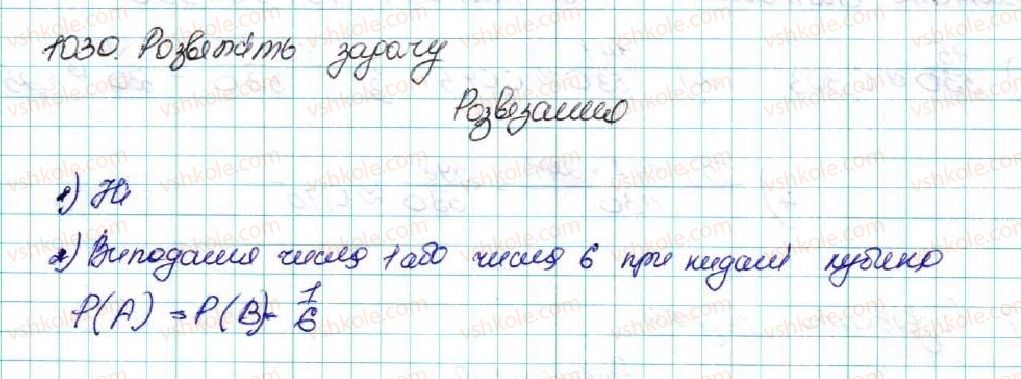 1030. Розв'яжіть задачу
Розв'язання
1) Ні
2) Випадання числа 1 або числа 6 при киданні кубика
P(A) = P(B) = 1/6